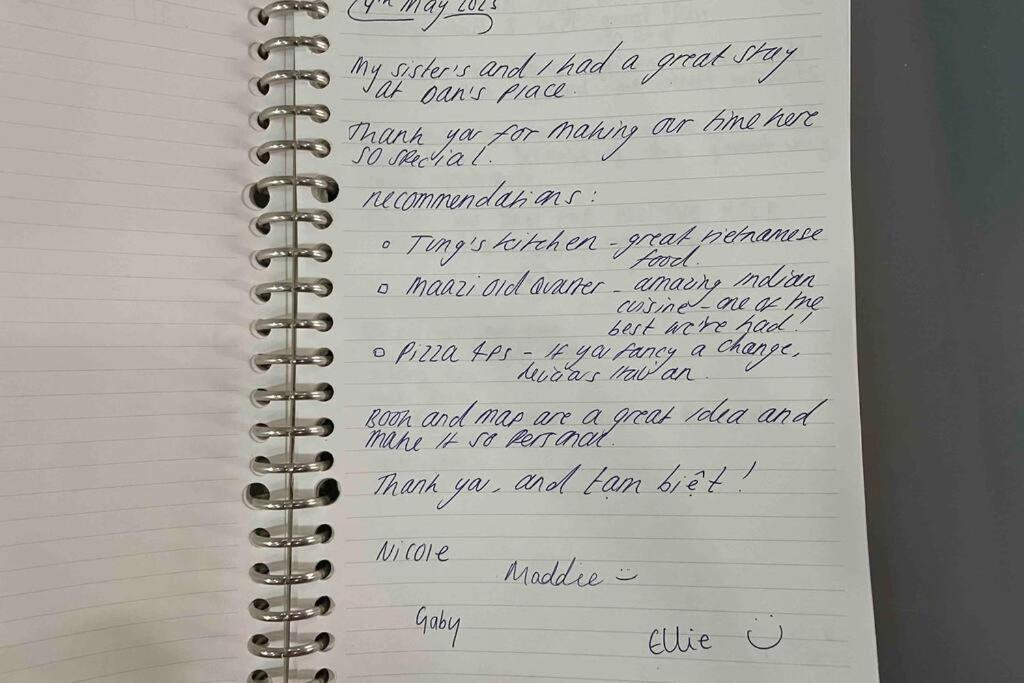 4th May 2023
My sister's and I had a great stay
at Dan's Place.
Thank you for making our time here
so special.
recommendations:
Tung's kitchen - great vietnamese
food.
Maazi Old Quarter - amazing Indian
cuisine - one of the
best we've had!
Pizza 4ps - If you fancy a change,
delicious Italian.
Book and map are a great idea and
make it so personal.
Thank you, and tạm biệt!
Nicole
Maddie
Gaby
Ellie